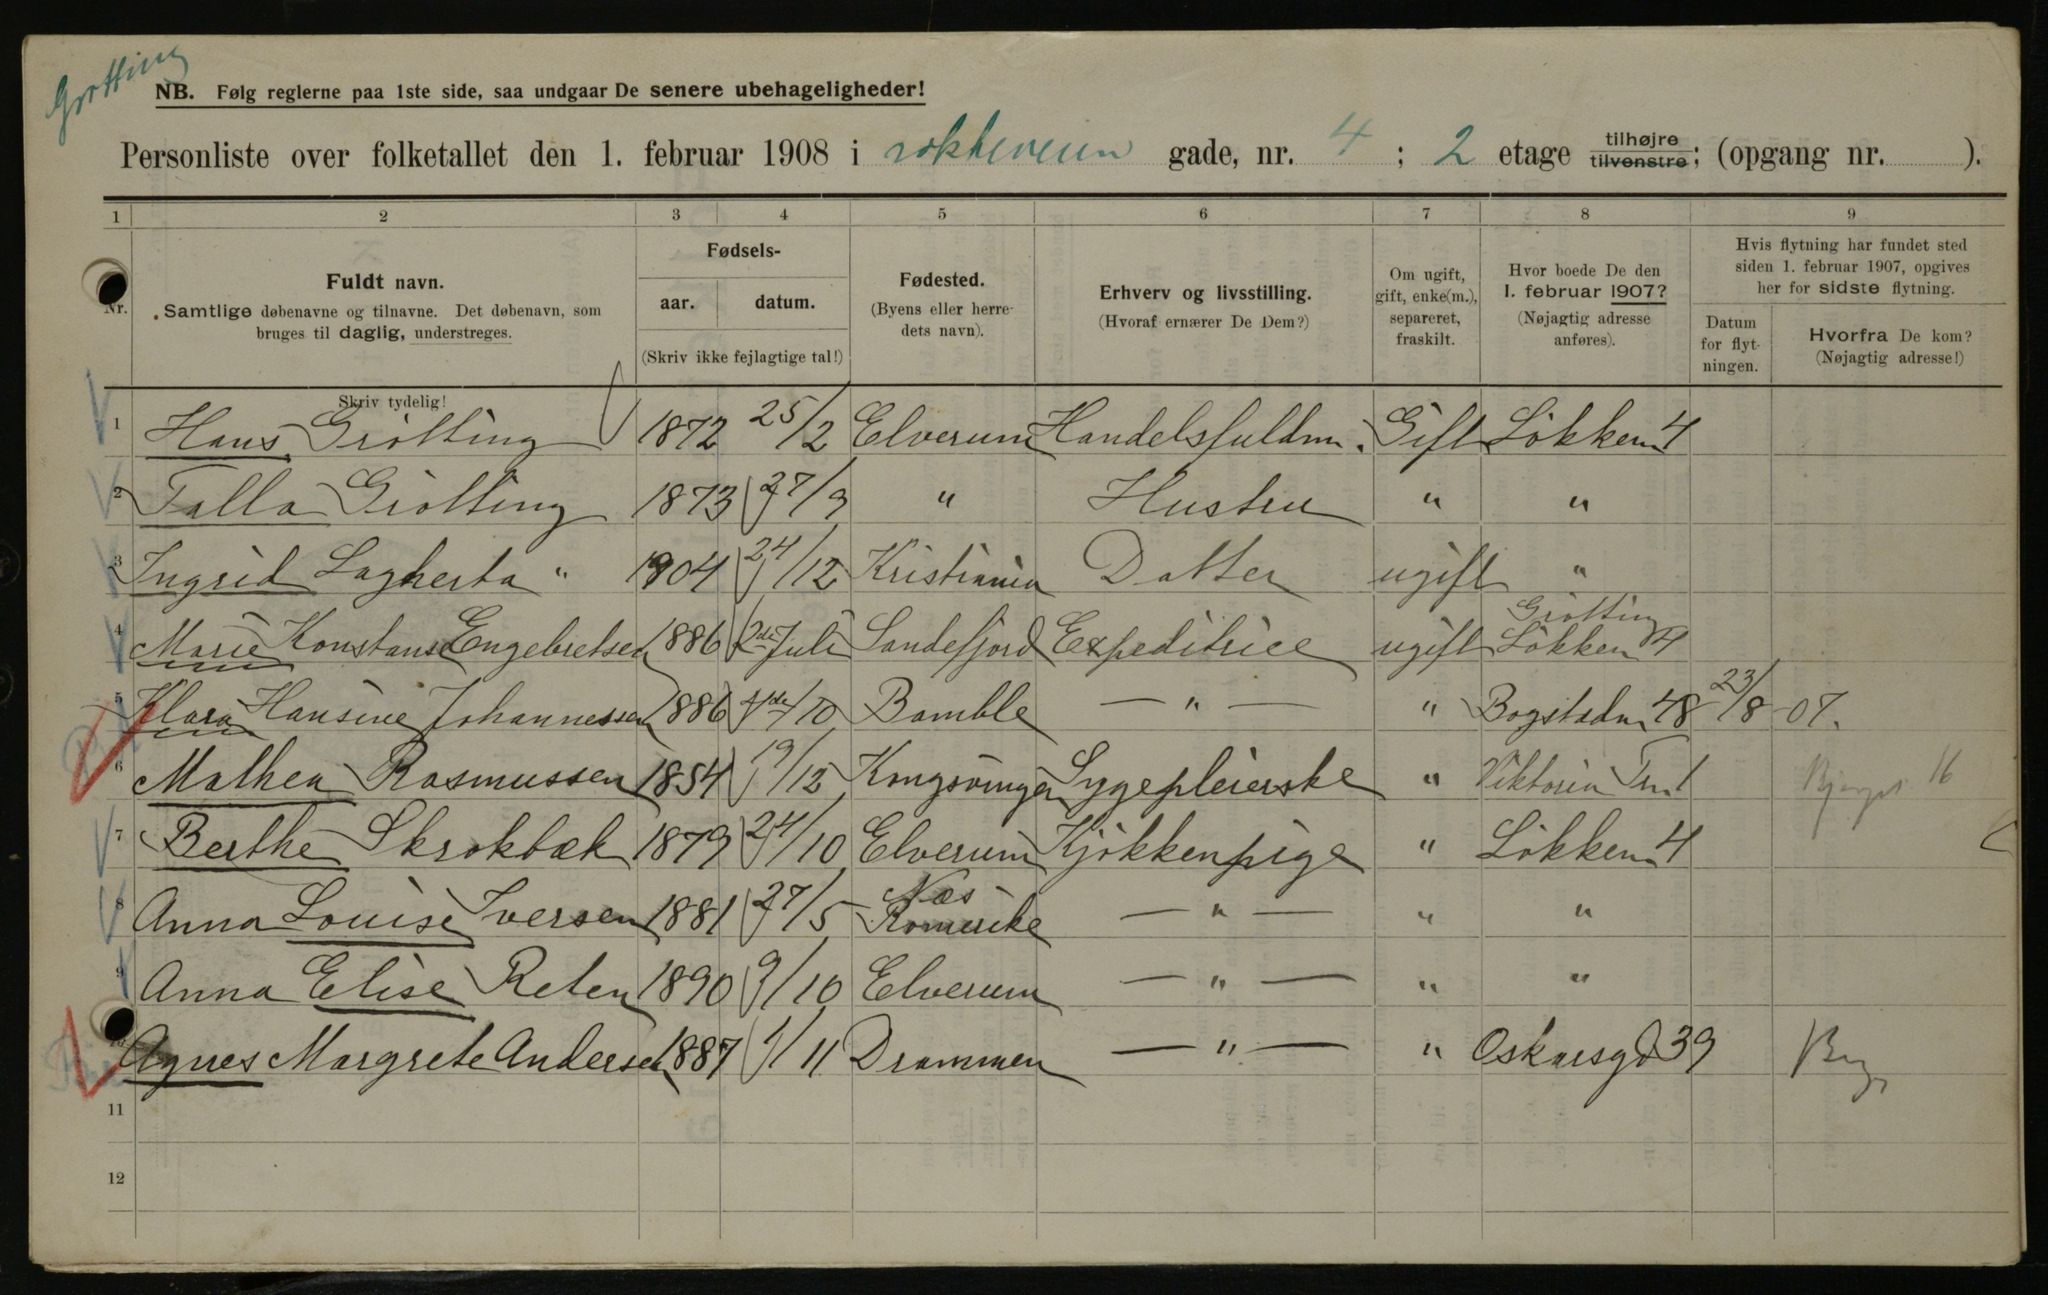 Grøtting
NB. Følg reglerne paa 1ste side, saa undgaar De senere ubehageligheder!
Personliste over folketallet den 1. februar 1908 i gade, nr. 4; 2 etage tilhøjre tilvenstre; (opgang nr. ).
1 2 3 4 5 6 7 8 9
Nr.
Fuldt navn.
Samtlige døbenavne og tilnavne. Det døbenavn, som
bruges til daglig, understreges.
Skriv tydelig!
Fødsels-
aar. datum.
(Skriv ikke fejlagtige tal!)
Fødested.
(Byens eller herre-
dets navn).
Erhverv og livsstilling.
(Hvoraf ernærer De Dem?)
Om ugift,
gift, enke(m.),
separeret,
fraskilt.
Hvor boede De den
1. februar 1907?
(Nøjagtig adresse
anføres).
Hvis flytning har fundet sted
siden 1. februar 1907, opgives
her for sidste flytning.
Datum
for flyt-
ningen.
Hvorfra De kom?
(Nøjagtig adresse!)
1 Hans Grötting 1872 25/2 Elverum Handelsfuldm. Gift Lökken 4
2 Talla Grötting 1873 27/9 " Hustru " "
3 Ingrid Lagherta " 1904 24/12 Kristiania Datter ugift "
4 Marie Konstanse Engebretsen 1886 2de Juli Sandefjord Expeditrice ugift Grötting Lökken 4
5 Klara Hansine Johannessen 1886 /10 Bamble — " — " Bogstadv 48 23/8 07.
6 Mathea Rasmussen 1854 19/12 Kongsvinger Sygepleierske " Viktoria Tr. 1 16
7 Berthe Skrokbæk 1879 24/10 Elverum Kjökkenpige " Lökken 4
8 Anna Louise Iversen 1881 27/5 Næs Romerike — " — " "
9 Anna Elise Reten 1890 9/10 Elverum — " — " "
10 Agnes Margrete Andersen 1887 1/11 Drammen — " — " Oskarsgd 39
11
12